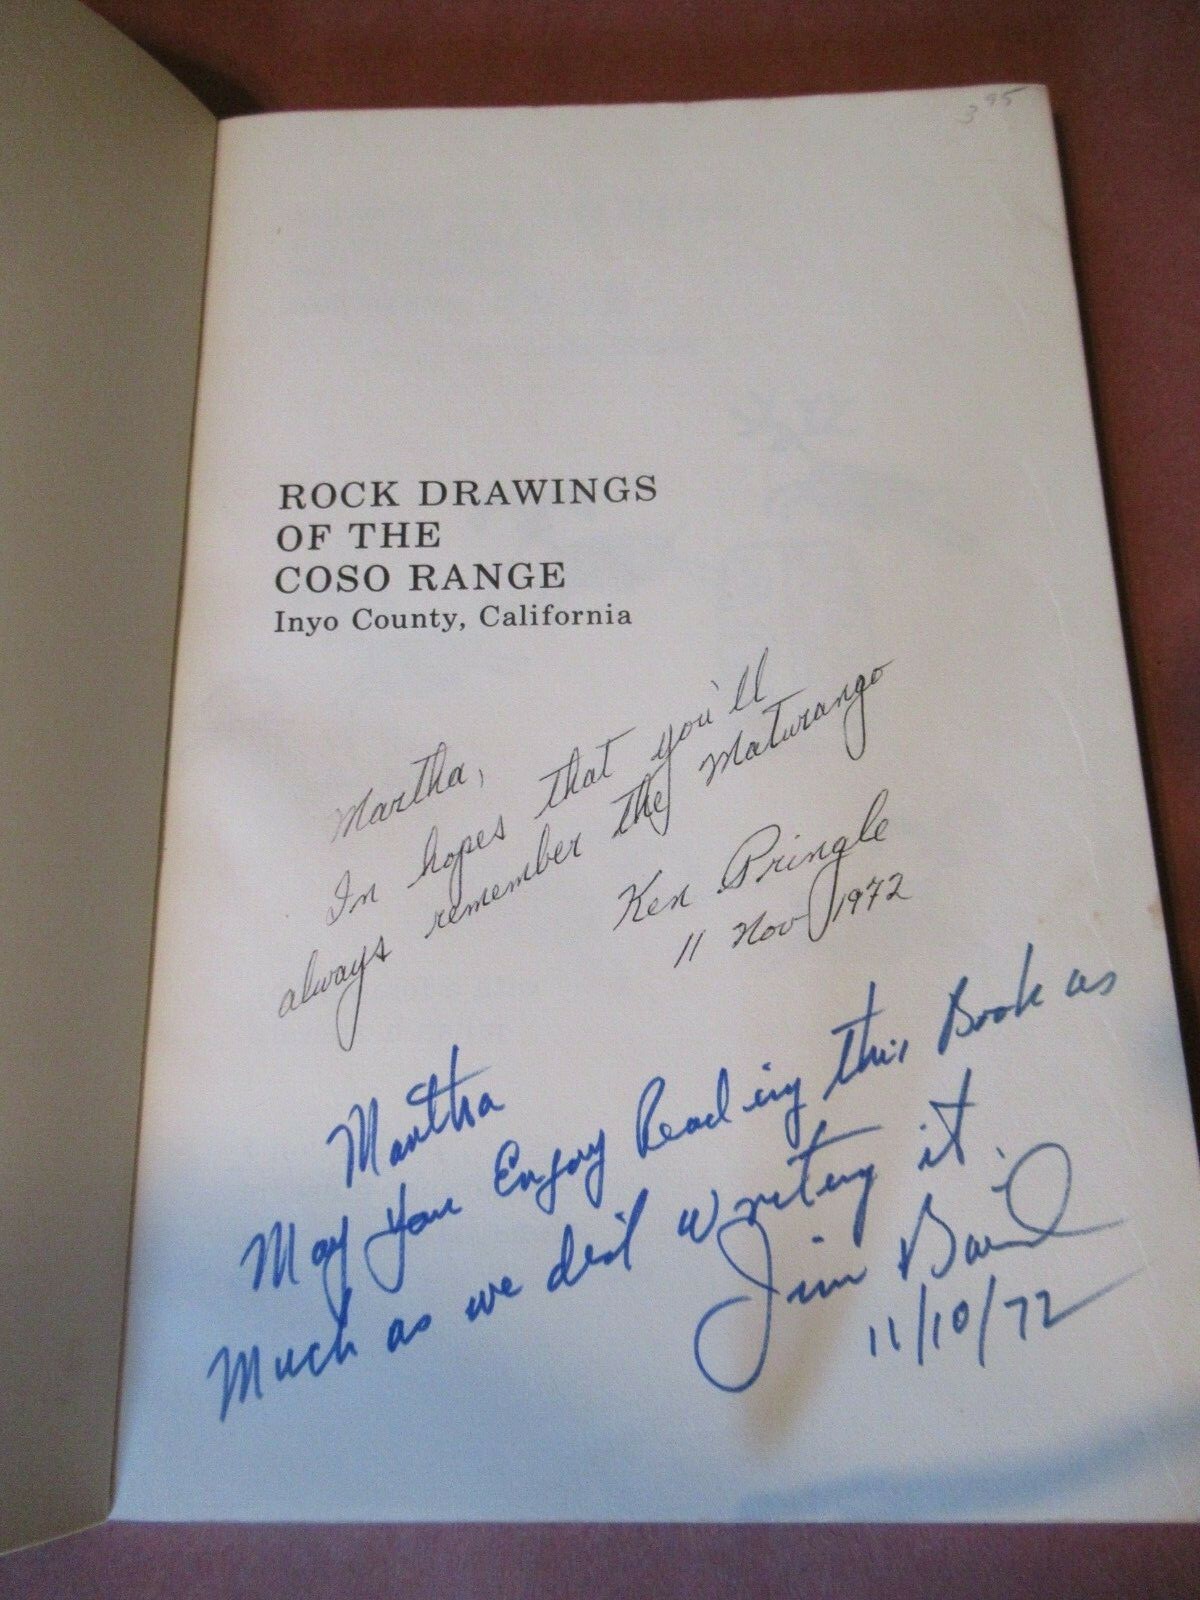 3 95
ROCK DRAWINGS
OF THE
COSO RANGE
Inyo County, California
Martha,
In hopes that you'll
always remember the Maturango
Ken Pringle
11 Nov 1972
Martha
May you Enjoy Reading this Book as
Much as we did writing it.
Jim Baird
11/10/72